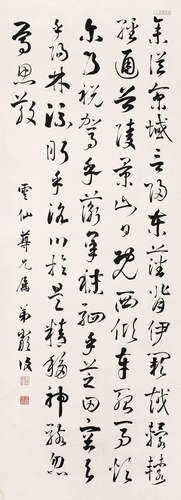 余從京域言歸東藩背伊闕越轘轅
經通谷陵景山日既西傾車殆馬煩
爾乃稅駕乎蘅皋秣駟乎芝田容與
乎陽林流眄乎洛川於是精移神駭忽
焉思散
雲仙尊兄屬 弟